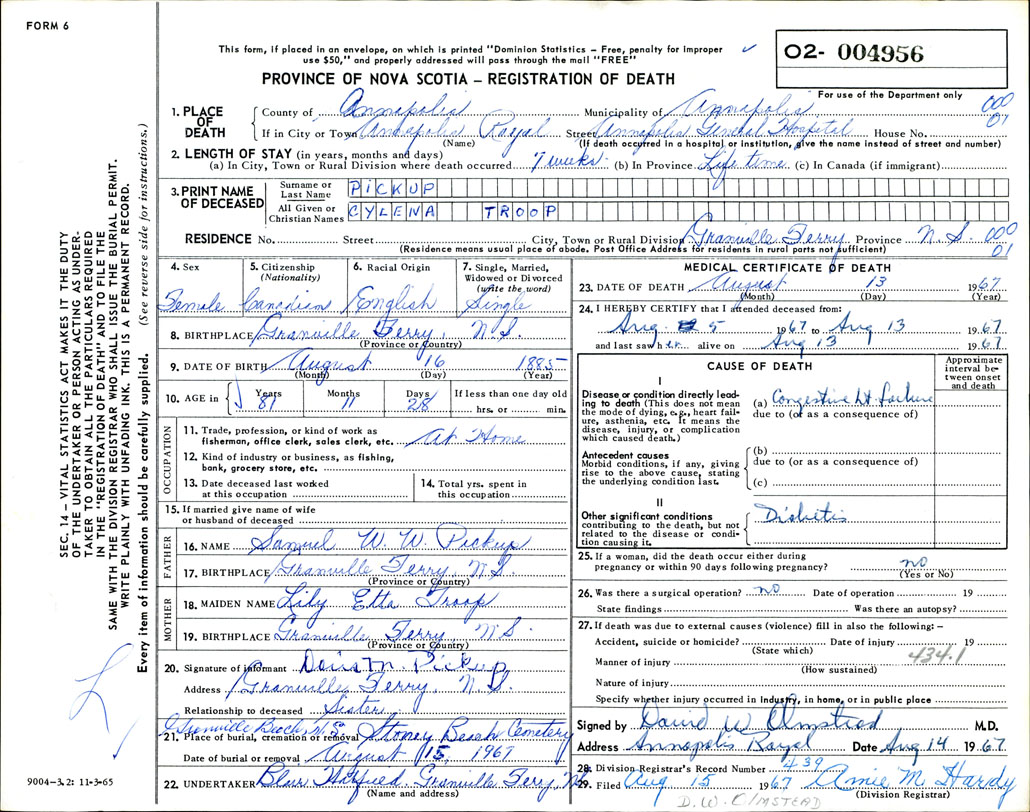 FORM 6
This form, if placed in an envelope, on which is printed "Dominion Statistics – Free, penalty for improper
use $50," and properly addressed will pass through the mail "FREE"
O2- 004956
PROVINCE OF NOVA SCOTIA – REGISTRATION OF DEATH
For use of the Department only
1. PLACE OF DEATH
County of Annapolis Municipality of Annapolis 000
01
If in City or Town Annapolis Royal Street Annapolis General Hospital House No.
(Name) (If death occurred in a hospital or institution, give the name instead of street and number)
2. LENGTH OF STAY (in years, months and days)
(a) In City, Town or Rural Division where death occurred 7 weeks (b) In Province Life time (c) In Canada (if immigrant)
3. PRINT NAME OF DECEASED
Surname or Last Name PICKUP
All Given or Christian Names CYLENA TROOP
RESIDENCE No. Street City, Town or Rural Division Granville Ferry Province N.S. 000
01
(Residence means usual place of abode. Post Office Address for residents in rural parts not sufficient)
SEC. 14 – VITAL STATISTICS ACT MAKES IT THE DUTY
OF THE UNDERTAKER OR PERSON ACTING AS UNDER-
TAKER TO OBTAIN ALL THE PARTICULARS REQUIRED
IN THE "REGISTRATION OF DEATH" AND TO FILE THE
SAME WITH THE DIVISION REGISTRAR WHO SHALL ISSUE THE BURIAL PERMIT.
WRITE PLAINLY WITH UNFADING INK. THIS IS A PERMANENT RECORD.
Every item of information should be carefully supplied. (See reverse side for instructions.)
4. Sex
Female
5. Citizenship
(Nationality)
Canadian
6. Racial Origin
English
7. Single, Married,
Widowed or Divorced
(write the word)
Single
8. BIRTHPLACE Granville Ferry, N.S.
(Province or Country)
9. DATE OF BIRTH August 16 1885
(Month) (Day) (Year)
10. AGE in
Years Months Days If less than one day old
81 11 28 hrs. or min.
OCCUPATION
11. Trade, profession, or kind of work as
fisherman, office clerk, sales clerk, etc. At Home
12. Kind of industry or business, as fishing,
bank, grocery store, etc.
13. Date deceased last worked
at this occupation
14. Total yrs. spent in
this occupation
15. If married give name of wife
or husband of deceased
FATHER
16. NAME Samuel W. W. Pickup
17. BIRTHPLACE Granville Ferry, N.S.
(Province or Country)
MOTHER
18. MAIDEN NAME Lily Etta Troop
19. BIRTHPLACE Granville Ferry, N.S.
(Province or Country)
20. Signature of informant M. Pickup
Address Granville Ferry, N.S.
Relationship to deceased Sister
Granville Beach, N.S.
21. Place of burial, cremation or removal Stoney Beach Cemetery
Date of burial or removal August 15, 1967
22. UNDERTAKER Granville Ferry, N.S.
(Name and address)
9004–3.2: 11-3-65
MEDICAL CERTIFICATE OF DEATH
23. DATE OF DEATH August 13 1967
(Month) (Day) (Year)
24. I HEREBY CERTIFY that I attended deceased from:
Aug. 5 1967 to Aug 13 1967
and last saw her alive on Aug 13 1967
CAUSE OF DEATH
Approximate interval between onset and death
I
Disease or condition directly lead-
ing to death (This does not mean
the mode of dying, e.g., heart fail-
ure, asthenia, etc. It means the
disease, injury, or complication
which caused death.)
(a) Congestive Ht. failure
due to (or as a consequence of)
Antecedent causes
Morbid conditions, if any, giving
rise to the above cause, stating
the underlying condition last.
(b)
due to (or as a consequence of)
(c)
II
Other significant conditions
contributing to the death, but not
related to the disease or condi-
tion causing it.
Diabetis
25. If a woman, did the death occur either during
pregnancy or within 90 days following pregnancy? no
(Yes or No)
26. Was there a surgical operation? no Date of operation 19
State findings Was there an autopsy?
27. If death was due to external causes (violence) fill in also the following: –
Accident, suicide or homicide? Date of injury 19
(State which) 434.1
Manner of injury
(How sustained)
Nature of injury
Specify whether injury occurred in industry, in home, or in public place
Signed by David W Olmstead M.D.
Address Annapolis Royal Date Aug 14 1967
28. Division Registrar's Record Number 439
29. Filed Aug 15 1967 Amie M. Hardy
(Division Registrar)
D. W. OLMSTEAD